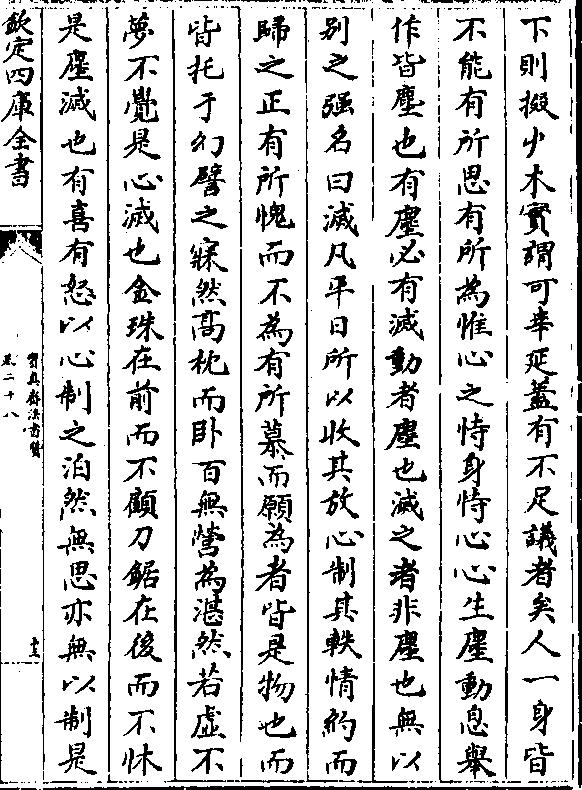 下則掇少木實謂可幸延蓋有不足議者矣人一身皆
不能有所思有所為惟心之恃身恃心心生塵動息舉
作皆塵也有塵必有滅動者塵也滅之者非塵也無以
别之强名曰滅凡平日所以收其放心制其軼情約而
歸之正有所愧而不為有所慕而願為者皆是物也而
皆托于幻譬之寐然高枕而卧百無營為湛然若虛不
夢不覺是心滅也金珠在前而不顧刀鋸在後而不怵
是塵滅也有喜有怒以心制之泊然無思亦無以制是
欽定四庫全書
寶真齋法書贊
卷二十八